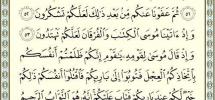 ثُمَّ عَفَوْنَا عَنكُم مِّن بَعْدِ ذَٰلِكَ لَعَلَّكُمْ تَشْكُرُونَ ٥٢
وَإِذْ ءَاتَيْنَا مُوسَى الْكِتَٰبَ وَالْفُرْقَانَ لَعَلَّكُمْ تَهْتَدُونَ ٥٣
وَإِذْ قَالَ مُوسَىٰ لِقَوْمِهِ يَٰقَوْمِ إِنَّكُمْ ظَلَمْتُمْ أَنفُسَكُم
بِاتِّخَاذِكُمُ الْعِجْلَ فَتُوبُوا إِلَىٰ بَارِئِكُمْ فَاقْتُلُوا أَنفُسَكُمْ ذَٰلِكُمْ